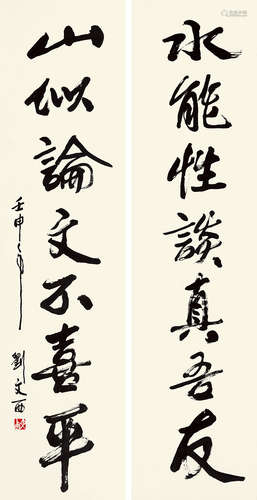 水能性談真吾友
山似論文不喜平
壬申年
劉文西